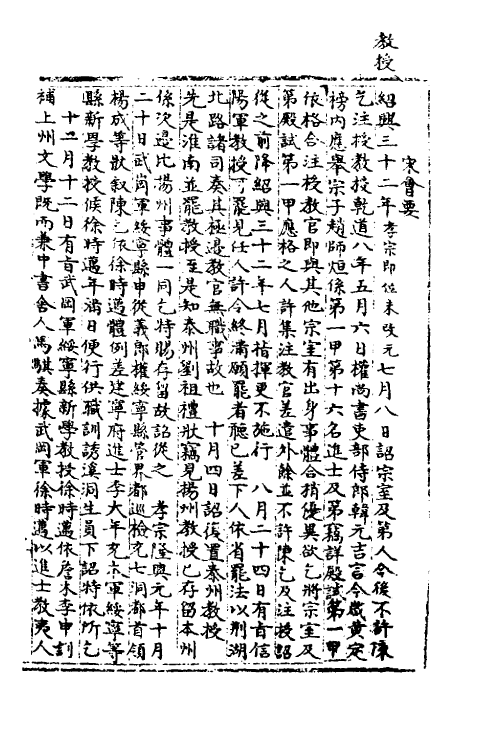 教授
宋會要
紹興三十二年孝宗即位未改元七月八日詔宗室及第人今後不許陳
乞注授教授乾道八年五月六日權尚書吏部侍郎韓元吉言今歲黃定
榜內應舉宗子趙師烜係第一甲第十六名進士及第竊詳殿試第一甲
依格合注授教官即與其他宗室有出身事體合稍優異欲乞將宗室及
第殿試第一甲應格之人許集注教官差遣外餘並不許陳乞及注授詔
從之前降紹興三十二年七月指揮更不施行 八月二十四日有旨信
陽軍教授可罷見任人許令終滿願罷者聽已差下人依省罷法以荊湖
北路諸司奏其極邊教官無職事故也 十月四日詔復置泰州教授
先是淮南並罷教授至是知泰州劉祖禮狀竊見揚州教授已存留本州
係次邊比揚州事體一同乞特賜存留故詔從之 孝宗隆興元年十月
二十日武岡軍綏寧縣申從義郎權綏寧縣管界都巡檢充七洞都首領
楊成等狀叙陳乞依徐時邁體例差建寧府進士李大年充本軍綏寧等
縣新學教授候徐時邁年滿日便行供職訓誘溪洞生員下詔特依所乞
十二月十二日有旨武岡軍綏寧縣新學教授徐時邁依詹木李申刻
補上州文學既而兼中書舍人馬騏奏據武岡軍徐時邁以進士教夷人